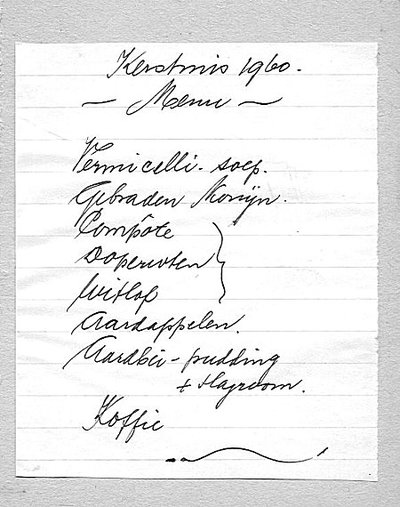 Kerstmis 1960.
— Menu —
Vermicelli - soep.
Gebraden Konijn.
Compôte
Doperwten
Witlof
Aardappelen.
Aardbei - pudding
+ slagroom.
Koffie